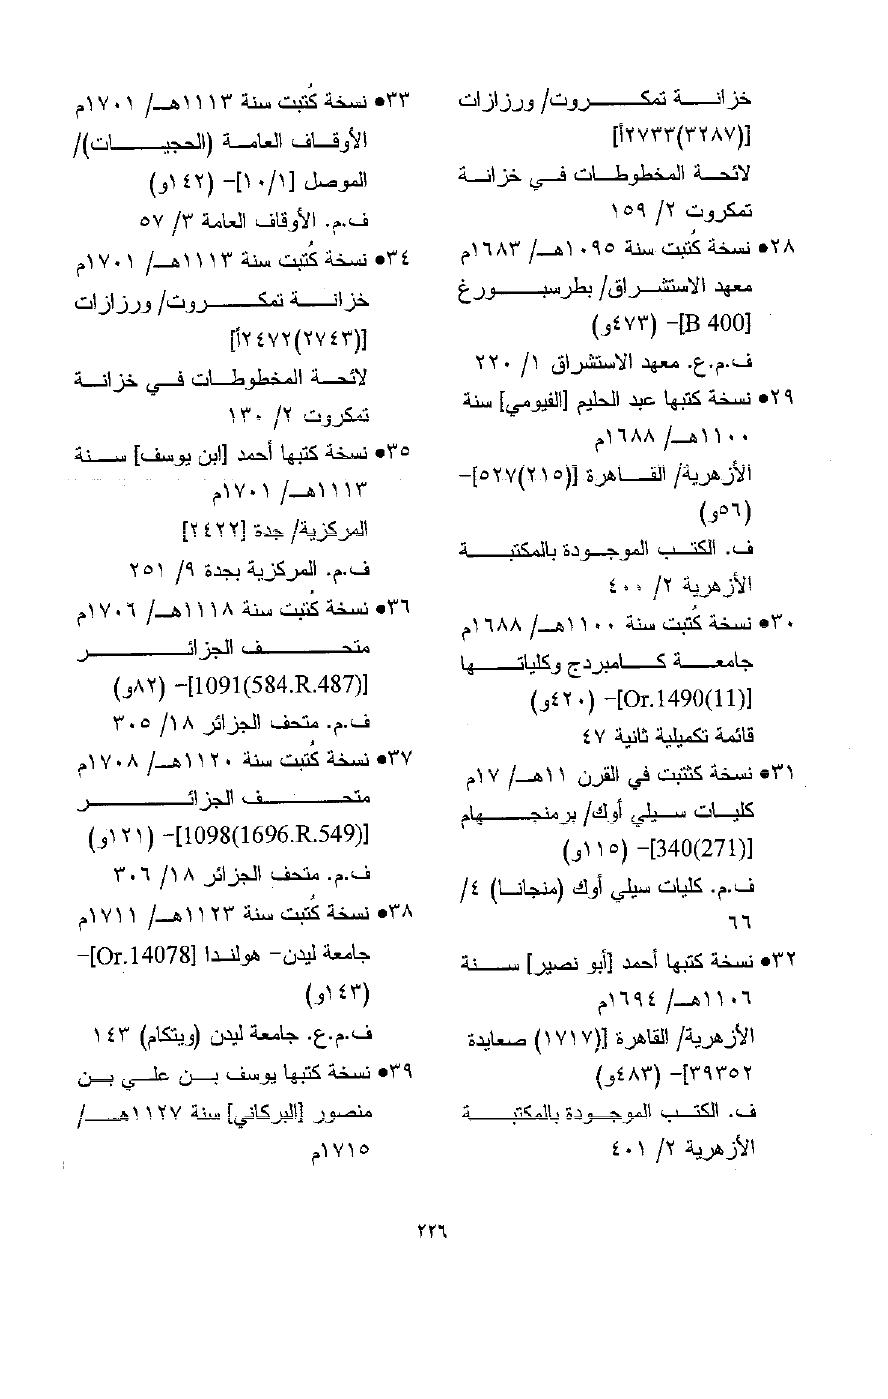 خزانة تمكروت/ ورزازات
[(٣٢٨٧)٢٧٣٣أ]
لائحة المخطوطات في خزانة
تمكروت ٢/ ١٥٩
٢٨• نسخة كُتبت سنة ١٠٩٥هـ/ ١٦٨٣م
معهد الاستشراق/ بطرسبورغ
[B 400]- (٤٧٣و)
ف.م.ع. معهد الاستشراق ١/ ٢٢٠
٢٩• نسخة كتبها عبد الحليم [الفيومي] سنة
١١٠٠هـ/ ١٦٨٨م
الأزهرية/ القاهرة [(٢١٥)٥٢٧]-
(٥٦و)
ف. الكتب الموجودة بالمكتبة
الأزهرية ٢/ ٤٠٠
٣٠• نسخة كُتبت سنة ١١٠٠هـ/ ١٦٨٨م
جامعة كامبردج وكلياتها
[Or.1490(11)]- (٤٢٠و)
قائمة تكميلية ثانية ٤٧
٣١• نسخة كتبت في القرن ١١هـ/ ١٧م
كليات سيلي أوك/ برمنجهام
[340(271)]- (١١٥و)
ف.م. كليات سيلي أوك (منجانا) ٤/
٦٦
٣٢• نسخة كتبها أحمد [أبو نصير] سنة
١١٠٦هـ/ ١٦٩٤م
الأزهرية/ القاهرة [(١٧١٧) صعايدة
٣٩٣٥٢]- (٤٨٣و)
ف. الكتب الموجودة بالمكتبة
الأزهرية ٢/ ٤٠١
٣٣• نسخة كُتبت سنة ١١١٣هـ/ ١٧٠١م
الأوقاف العامة (الحجيات)/
الموصل [١٠/١]- (١٤٢و)
ف.م. الأوقاف العامة ٣/ ٥٧
٣٤• نسخة كُتبت سنة ١١١٣هـ/ ١٧٠١م
خزانة تمكروت/ ورزازات
[(٢٧٤٣)٢٤٧٢أ]
لائحة المخطوطات في خزانة
تمكروت ٢/ ١٣٠
٣٥• نسخة كتبها أحمد [ابن يوسف] سنة
١١١٣هـ/ ١٧٠١م
المركزية/ جدة [٢٤٢٢]
ف.م. المركزية بجدة ٩/ ٢٥١
٣٦• نسخة كُتبت سنة ١١١٨هـ/ ١٧٠٦م
متحف الجزائر
[1091(584.R.487)]- (٨٢و)
ف.م. متحف الجزائر ١٨/ ٣٠٥
٣٧• نسخة كُتبت سنة ١١٢٠هـ/ ١٧٠٨م
متحف الجزائر
[1098(1696.R.549)]- (١٢١و)
ف.م. متحف الجزائر ١٨/ ٣٠٦
٣٨• نسخة كُتبت سنة ١١٢٣هـ/ ١٧١١م
جامعة ليدن- هولندا [Or.14078]-
(١٤٣و)
ف.م.ع. جامعة ليدن (ويتكام) ١٤٣
٣٩• نسخة كتبها يوسف بن علي بن
منصور [البركاني] سنة ١١٢٧هـ/
١٧١٥م
٢٢٦